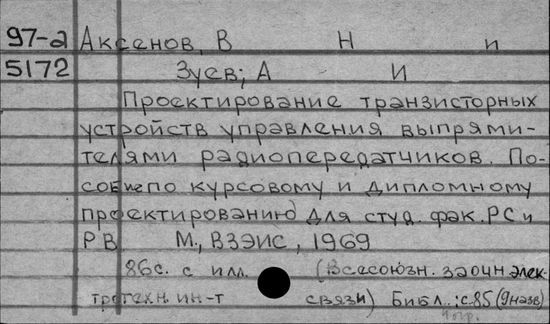 97-2 Аксенов, В Н и
5172 Зуев, А И
Проектирование транзисторных
устройств управления выпрями-
телями радиопередатчиков. По-
собие по курсовому и дипломному
проектированию для студ. фак. РС и
РВ М., ВЗЭИС, 1969
86с. с илл. (Всесоюзн. заочн элек-
тротехн. ин-т связи) Библ.: с.85 (9назв)